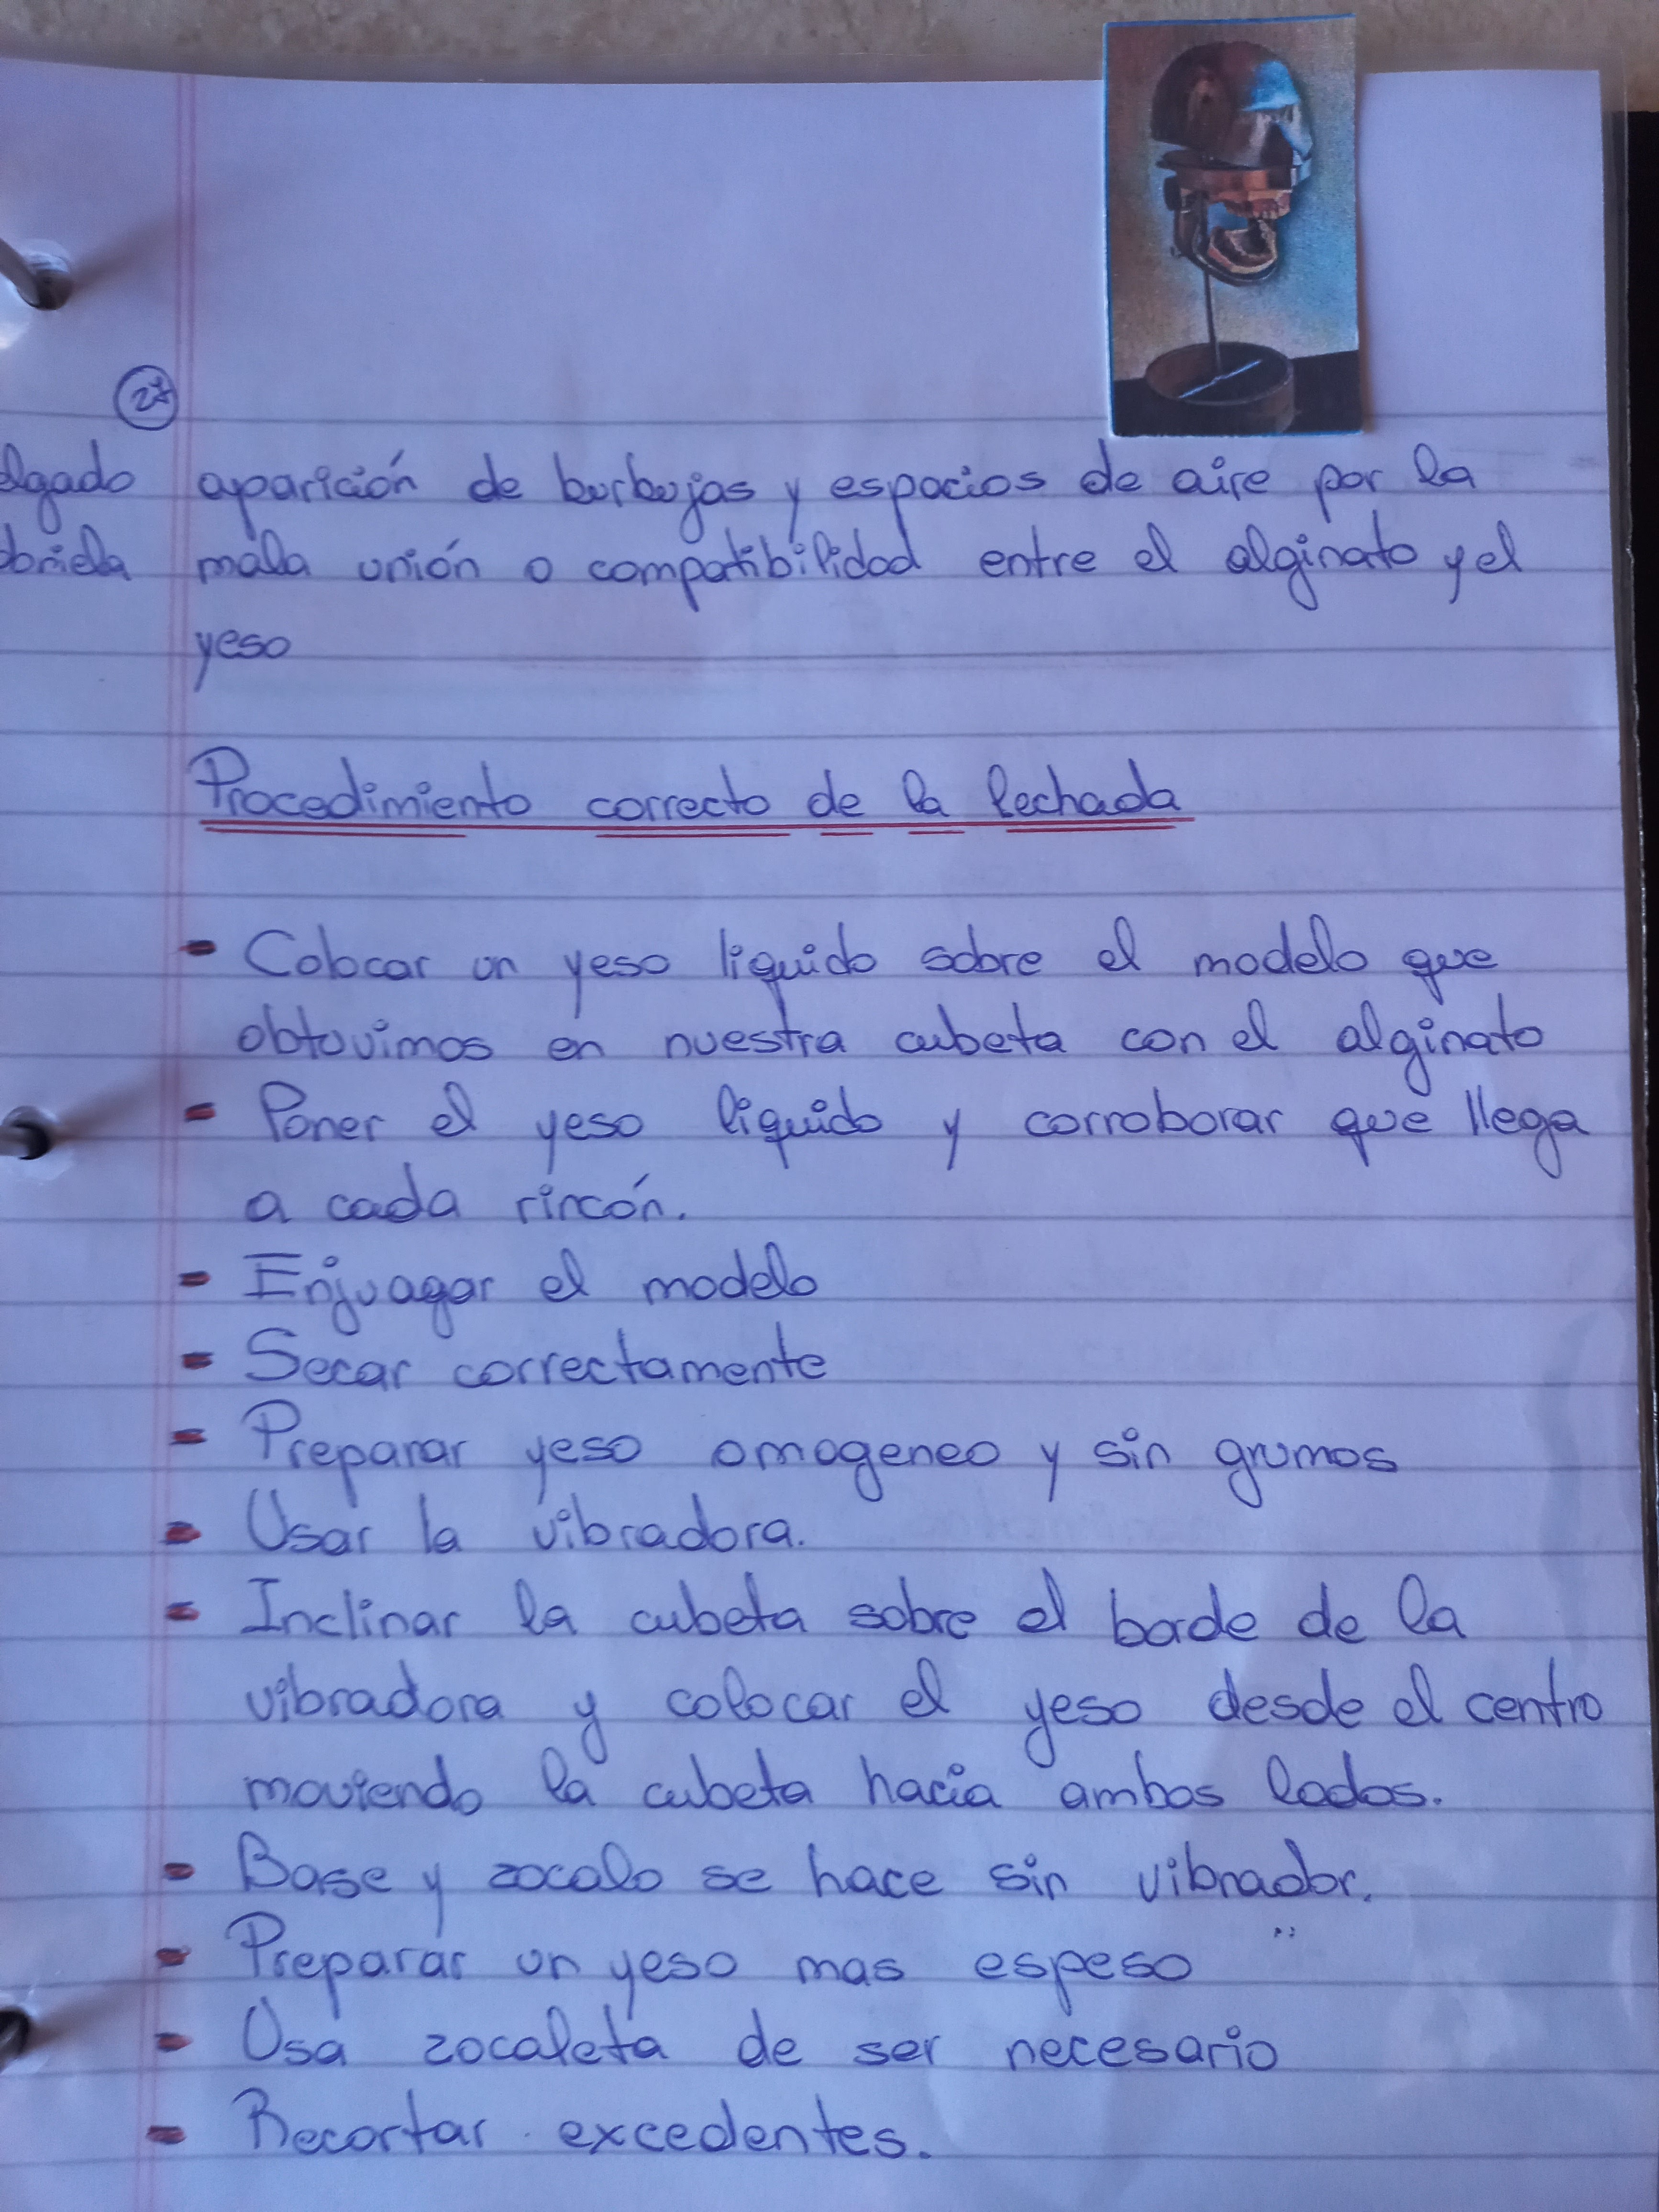 27
elgado aparición de burbujas y espacios de aire por la
briela mala unión o compatibilidad entre el alginato y el
yeso
Procedimiento correcto de la lechada
- Colocar un yeso liquido sobre el modelo que
obtuvimos en nuestra cubeta con el alginato
- Poner el yeso liquido y corroborar que llega
a cada rincón.
- Enjuagar el modelo
- Secar correctamente
- Preparar yeso omogeneo y sin grumos
- Usar la vibradora.
- Inclinar la cubeta sobre el borde de la
vibradora y colocar el yeso desde el centro
moviendo la cubeta hacia ambos lados.
- Base y zocalo se hace sin vibrador.
- Preparar un yeso mas espeso
- Usa zocaleta de ser necesario
- Recortar excedentes.